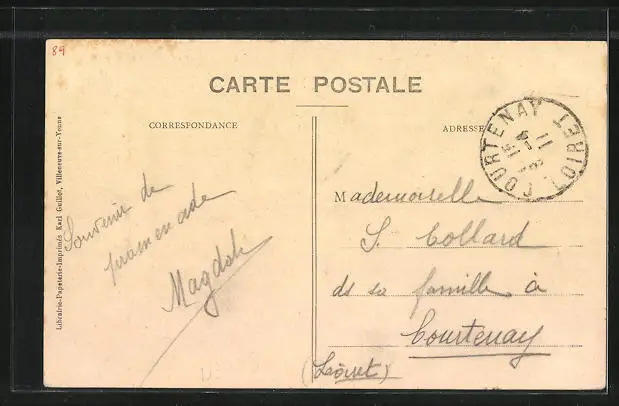 89
CARTE POSTALE
CORRESPONDANCE
ADRESSE
COURTENAY
LOIRET
Librairie-Papeterie-Imprimés Karl Guillot, Villeneuve-sur-Yonne
Souvenir de
promenade
Mademoiselle
S. Collard
ds sa famille à
Courtenay
(Loiret)